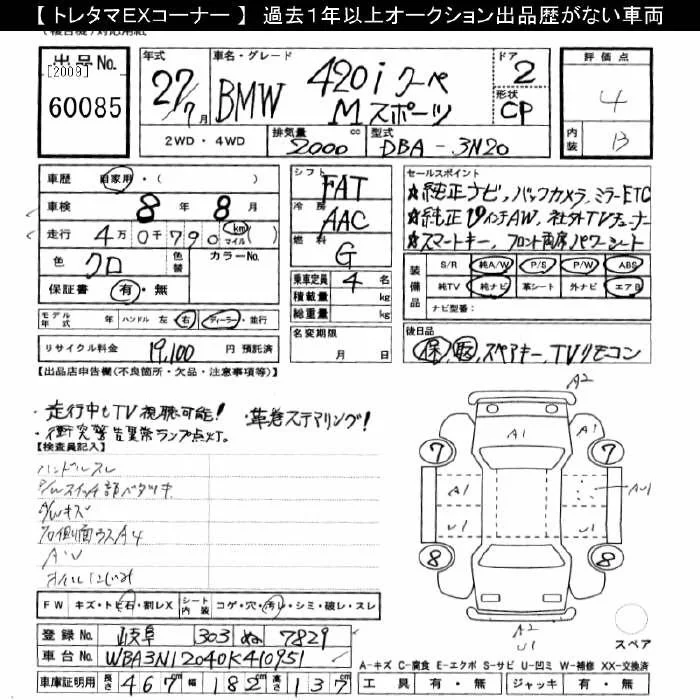 【 トレタマEXコーナー 】 過去1年以上オークション出品歴がない車両
出品No.
[2009]
60085
年式
27/7月
車名・グレード
BMW 420i クーペ
Mスポーツ
ドア
2
形状
CP
評価点
4
内装
B
2WD・4WD
排気量
2000
cc
型式
DBA-3N20
車歴 自家用・( )
車検 8年8月
走行 4万0千790 (km マイル)
色 クロ
色替
カラーNo.
保証書 有・無
モデル年式 年 ハンドル 左 右 ディーラー・並行
リサイクル料金 19,100 円 預託済
シフト
FAT
冷房
AAC
燃料
G
乗車定員 4 名
積載量 kg
総重量 kg
名変期限
月 日
セールスポイント
★純正ナビ、バックカメラ、ミラーETC
★純正19インチAW、社外TVチューナー
★スマートキー、フロント両席パワーシート
装備品
S/R 純A/W P/S P/W ABS
純TV 純ナビ 革シート 外ナビ エアB
ナビ型番:
後日品
保、取、スペアキー、TVリモコン
【出品店申告欄(不良箇所・欠品・注意事項等)】
・走行中もTV視聴可能! ・革巻ステアリング!
・衝突警告異常ランプ点灯。
【検査員記入】
ハンドルスレ
P/Wスイッチ部ベタツキ
AWキズ
A2
A1
7
7
A1
A1
U1
U1
8
8
A2
U1
スペア
FW キズ・トビ石・割レX シート内装 コゲ・穴・汚レ・シミ・破レ・スレ
登録No. 岐阜 303 ぬ 7829
車台No. WBA3N12040K410951
車庫証明用 長さ 467 幅 182 高さ 137 cm
A-キズ C-腐食 E-エクボ S-サビ U-凹ミ W-補修 XX-交換済
工具 有・無 ジャッキ 有・無